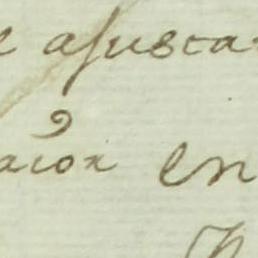 ajusta
acion en